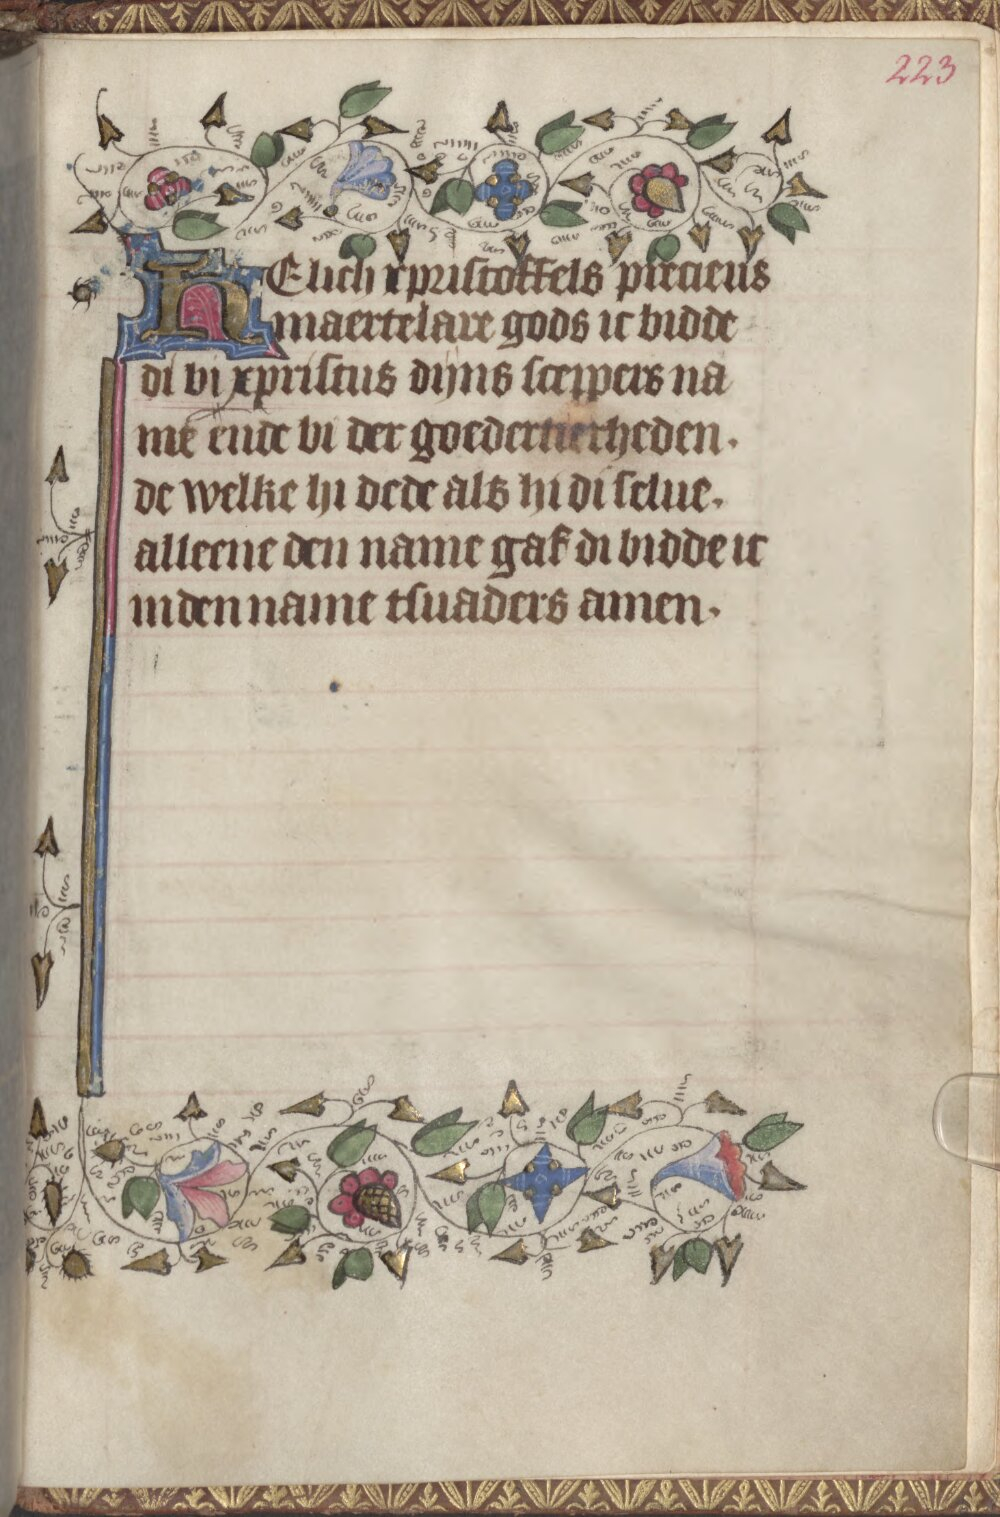 223
HElich xpristoffels precieus
maertelare gods ic bidde
di bi xpristus dijns sceppers na
me ende bi der goedertierheden.
de welke hi dede als hi di selue.
alleene den name gaf di bidde ic
inden name tsuaders amen.